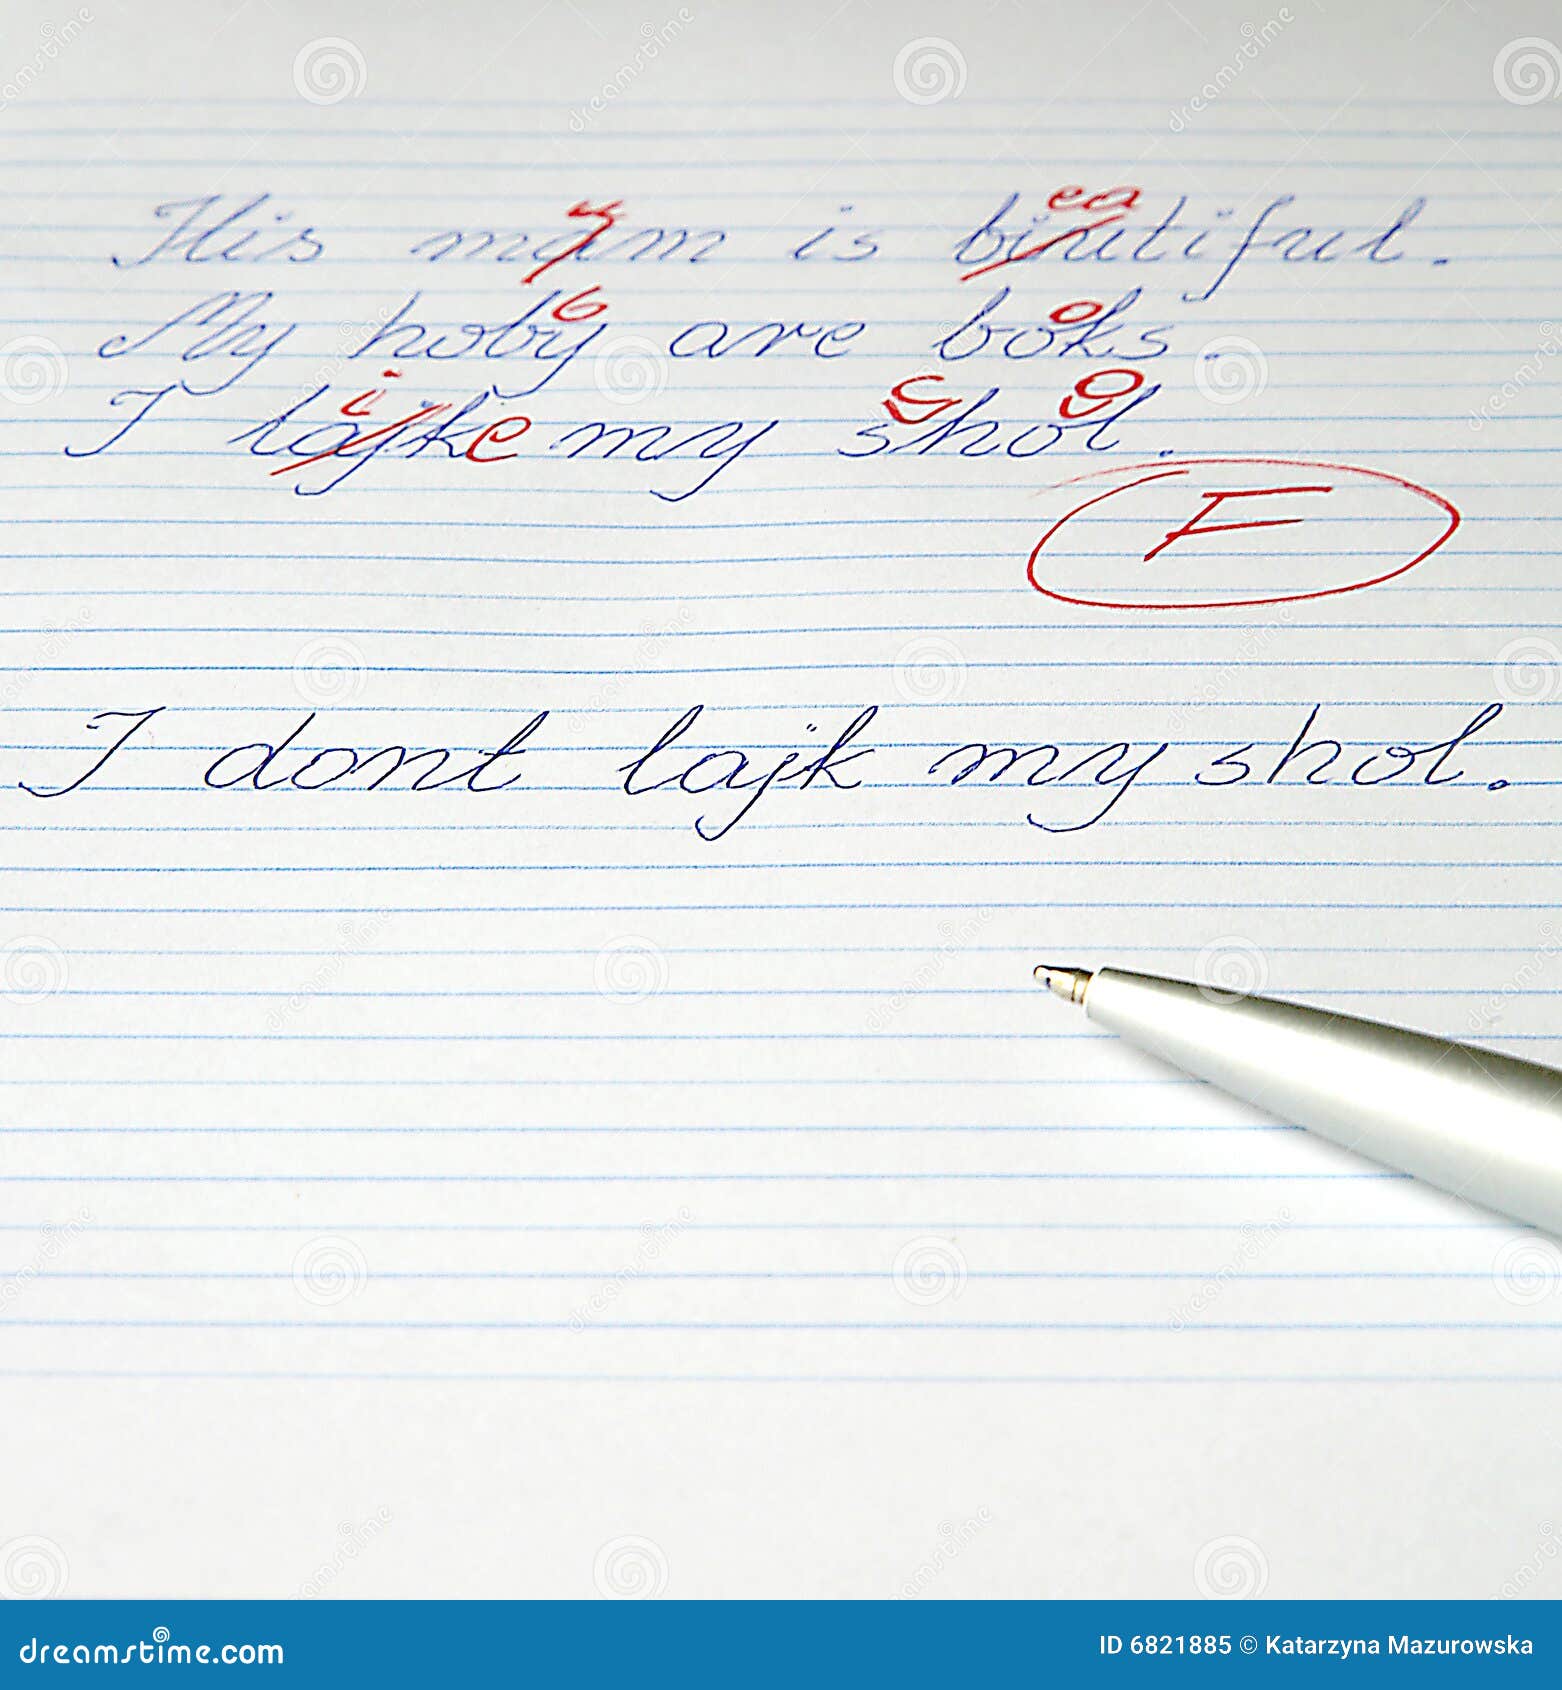 His mam is biutiful.
My hoby are boks.
I lajk e my shol.
F
I dont lajk my shol.
dreamstime.com
ID 6821885 © Katarzyna Mazurowska